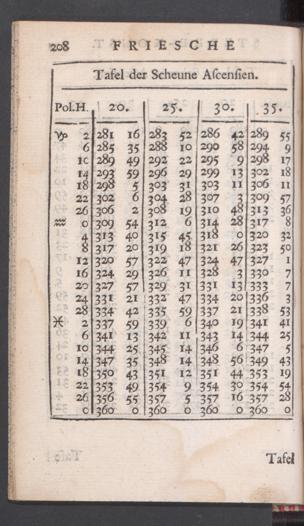 208 FRIESCHE
Tafel der Scheune Ascensien.
Pol.H. 20. 25. 30. 35.
♑ 2 281 16 283 52 286 42 289 55
6 285 35 288 10 290 58 294 9
10 289 49 292 22 295 9 298 17
14 293 59 296 29 299 13 302 18
18 298 5 303 31 303 11 306 11
22 302 6 304 28 307 3 309 57
26 306 2 308 19 310 48 313 36
♒ 0 309 54 312 6 314 28 317 8
4 313 40 315 45 318 0 320 32
8 317 20 319 18 321 26 323 50
12 320 57 322 47 324 47 327 1
16 324 29 326 11 328 3 330 7
20 327 57 329 31 331 13 333 7
24 331 21 332 47 334 20 336 3
28 334 42 335 59 337 21 338 53
♓ 2 337 59 339 6 340 19 341 41
6 341 13 342 11 343 14 344 25
10 344 25 345 14 346 6 347 5
14 347 35 348 14 348 56 349 43
18 350 43 351 12 351 44 353 19
22 353 49 354 9 354 30 354 54
26 356 55 357 5 357 16 357 28
0 360 0 360 0 360 0 360 0
Tafel